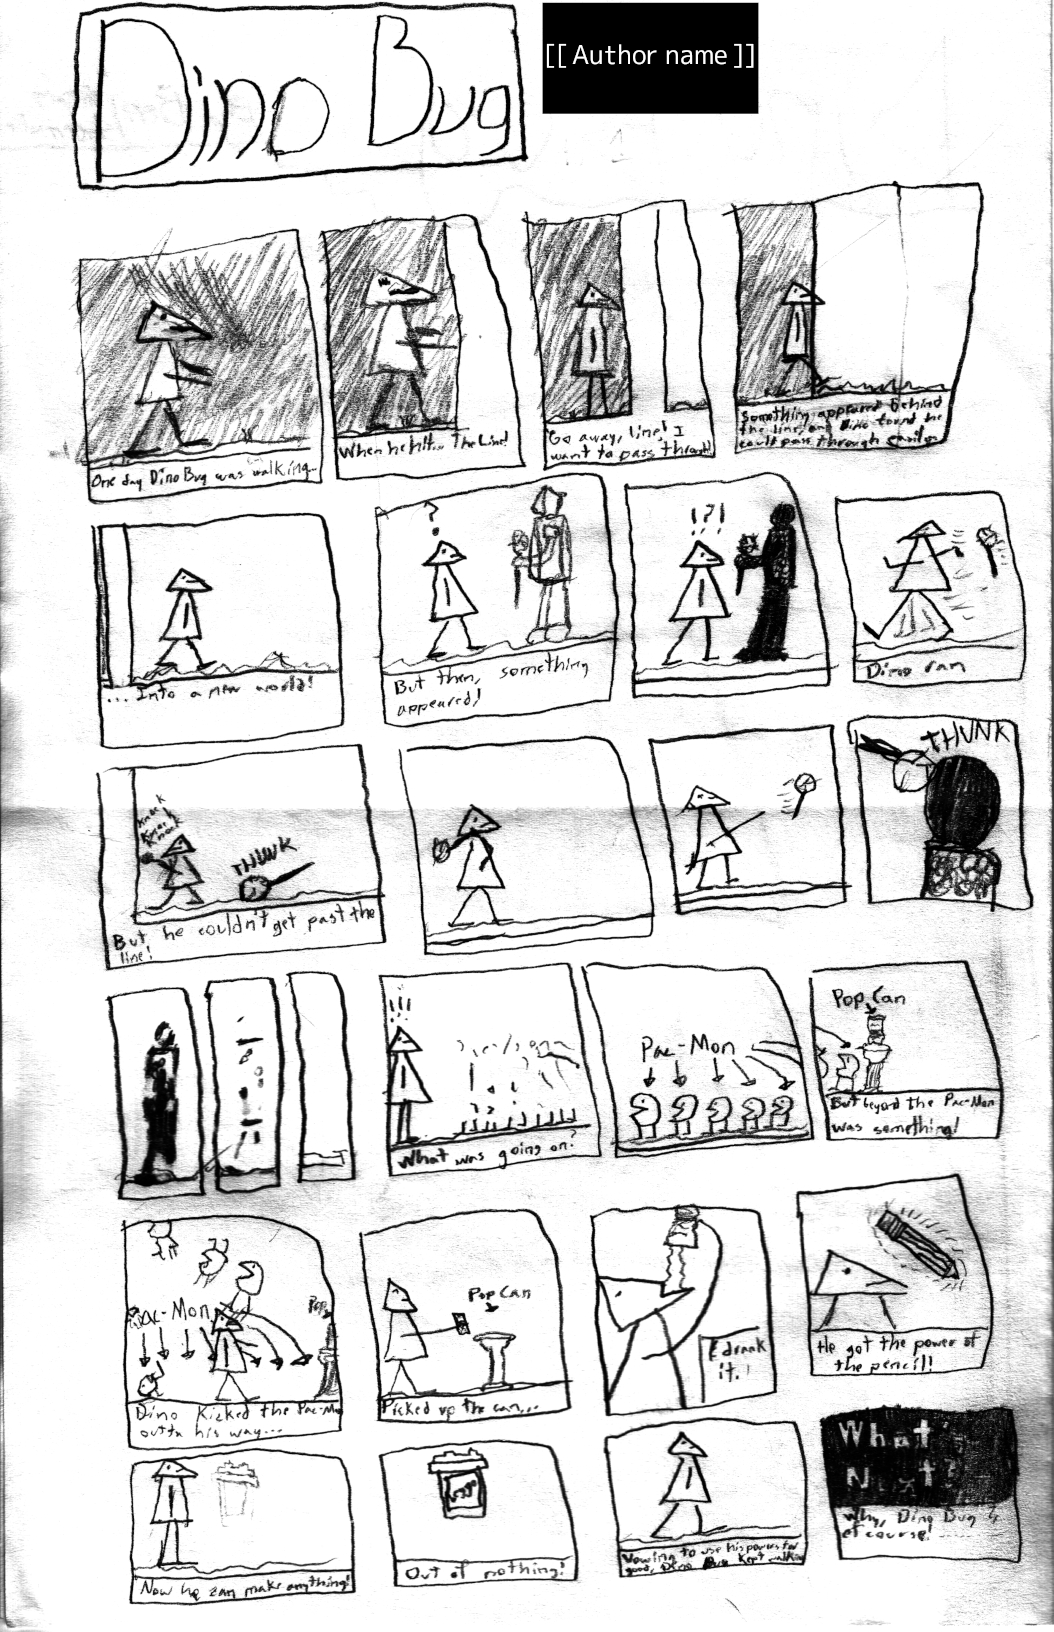 Dino Bug
[[Author name]]
One day Dino Bug was walking...
When he hit... The Line!
Go away, line! I
want to pass through!
Something appeared behind
the line, and Dino found he
could pass through easily
... Into a new world!
?
But then, something
appeared!
!?!
Dino ran
Knock
Knock
Knock
THUNK
But he couldn't get past the
line!
THUNK
!!!
What was going on?
Pac-Mon
Pop Can
But beyond the Pac-Mon
was something!
Pac-Mon
Pop
Dino Kicked the Pac-Mon
outta his way...
Pop Can
Picked up the can...
& drank
it.
He got the power of
the pencil!
Now he can make anything!
Out of nothing!
Vowing to use his powers for
good, Dino Kept walking
What's
Next?
Why, Dino Bug
of course!